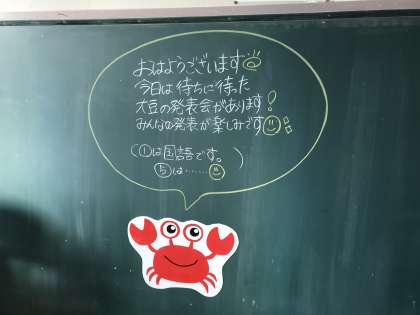 おはようございます
今日は待ちに待った
大豆の発表会があります!
みんなの発表が楽しみです
(①は国語です。
⑤は……)